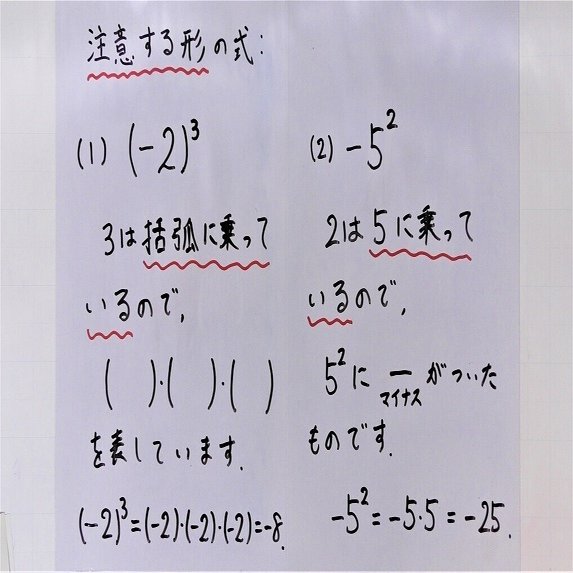 注意する形の式:
(1) (-2)³
3は括弧に乗って
いるので,
(  )・(  )・(  )
を表しています.
(-2)³=(-2)・(-2)・(-2)=-8.
(2) -5²
2は5に乗って
いるので,
5²に ー がついた
マイナス
ものです.
-5²=-5・5=-25.